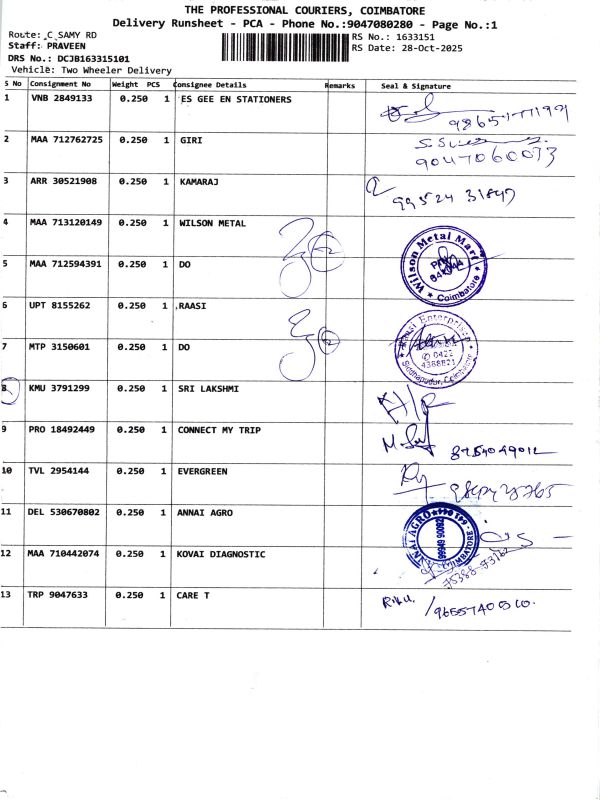 THE PROFESSIONAL COURIERS, COIMBATORE
Delivery Runsheet - PCA - Phone No.:9047080280 - Page No.:1
Route: C SAMY RD
Staff: PRAVEEN
DRS No.: DCJB163315101
Vehicle: Two Wheeler Delivery
RS No.: 1633151
RS Date: 28-Oct-2025
S No Consignment No Weight PCS Consignee Details Remarks Seal & Signature
1 VNB 2849133 0.250 1 ES GEE EN STATIONERS
2 MAA 712762725 0.250 1 GIRI 9047060073
3 ARR 30521908 0.250 1 KAMARAJ 99524 31847
4 MAA 713120149 0.250 1 WILSON METAL Wilson Metal Mart Coimbatore
5 MAA 712594391 0.250 1 DO
6 UPT 8155262 0.250 1 .RAASI
7 MTP 3150601 0.250 1 DO 0422 4388821
8 KMU 3791299 0.250 1 SRI LAKSHMI
9 PRO 18492449 0.250 1 CONNECT MY TRIP
10 TVL 2954144 0.250 1 EVERGREEN
11 DEL 530670802 0.250 1 ANNAI AGRO
12 MAA 710442074 0.250 1 KOVAI DIAGNOSTIC
13 TRP 9047633 0.250 1 CARE T